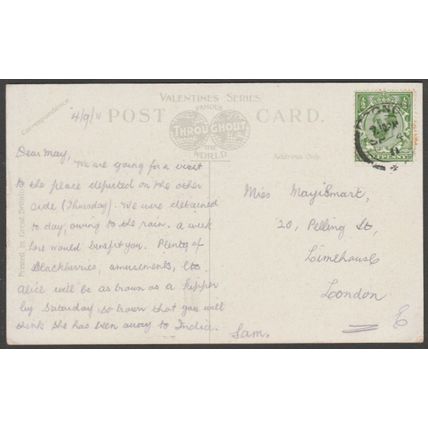 VALENTINE'S SERIES
FAMOUS
POST CARD.
THROUGHOUT
THE
WORLD
Correspondence
Address Only
4/9/11
Dear May,
We are going for a visit
to the place depicted on the other
side (Thursday). We are detained
to day, owing to the rain. A week
here would benefit you. Plenty of
Blackberries, amusements, etc.
Alice will be as brown as a kipper
by Saturday, so brown that you will
think she has been away to India.
Sam.
Miss May Smart,
20, Pelling St,
Limehouse
London
E
Printed in Great Britain